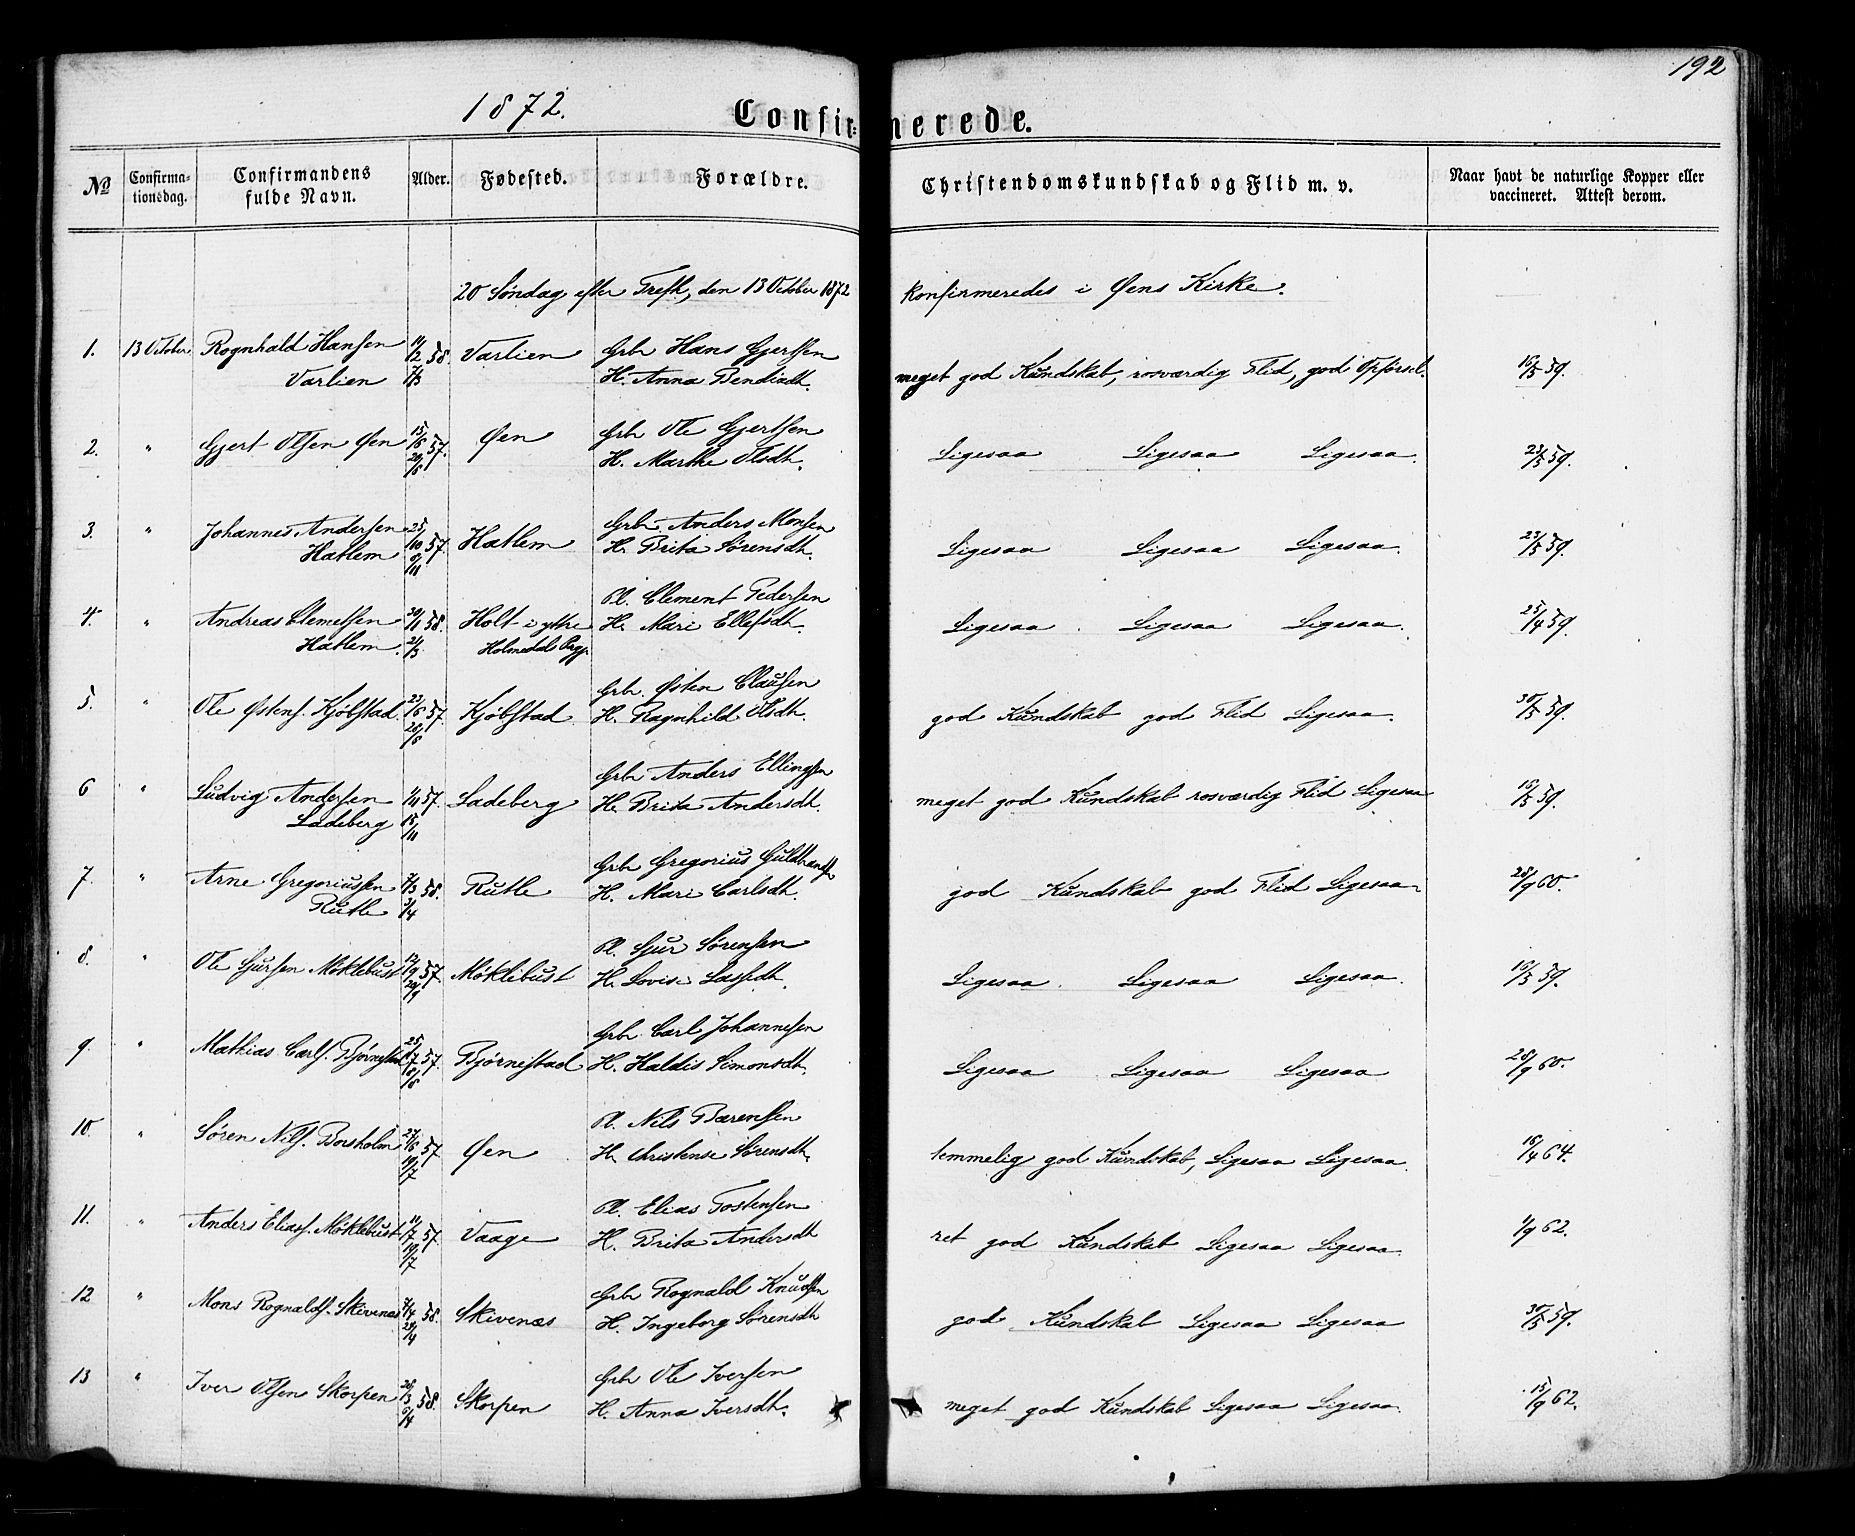 192
1872. Confirmerede.
No Confirmationsdag. Confirmandens fulde Navn. Alder. Fødested. Forældre. Christendomskundskab og Flid m. v. Naar havt de naturlige Kopper eller vaccineret. Attest derom.
20 Søndag efter Trefh, den 13 October 1872 konfirmeredes i Øens Kirke.
1. 13 October Rognhald Hansen 11/2 58. Varlien Grbr Hans Gjertsen
Varlien 7/3 H. Anna Bendixdt. meget god Kundskab, rosværdig Flid, god Opførsel. 16/5 59.
2. " Gjert Olsen Øen 15/6 57. Øen Grbr Ole Gjertsen
H. Marthe Olsdt. Ligesaa Ligesaa Ligesaa. 23/5 59.
3. " Johannes Andersen 25/10 57. Hatlem Grbr Anders Monsen
Hatlem H. Brita Sørensdt. Ligesaa Ligesaa Ligesaa. 23/5 59.
4. " Andreas Clemetsen 30/1 58. Holt i ytre Pl. Clement Pedersen
Hatlem. 21/3 Holmedal Prgj. H. Mari Ellefsdt. Ligesaa Ligesaa Ligesaa. 25/4 59.
5. " Ole Østens. Kjøbstad 22/6 57. Kjøbstad Grbr. Østen Clausen
H. Ragnhild Olsdt. god Kundskab god Flid Ligesaa. 30/5 59.
6 " Ludvig Andersen 1/11 57. Ladeberg Grbr Anders Ellingsen
Ladeberg 15/11 H. Brita Andersdt. meget god Kundskab rosværdig Flid Ligesaa 16/5 59.
7. " Arne Gregoriussen 7/3 58. Rutle Grbr Gregorius Guldbrands
Rutle H. Mari Carlsdt. god Kundskab god Flid Ligesaa 28/9 60.
8. " Ole Sjursen Møklebust 57. Møklebust Pl. Sjur Sørensen
H. Lovise Lassedt. Ligesaa Ligesaa Ligesaa. 16/5 59.
9. " Mathias Carls. Bjørnestad 25/7 57. Bjørnestad Grbr Carl Johannesen
H. Haldis Simonsdt. Ligesaa Ligesaa Ligesaa 28/9 60.
10. " Søren Nils. Borsholm 27/6 57 Øen Pl. Nils Bærensen
19/7 H. Christense Sørensdt. temmelig god Kundskab, Ligesaa Ligesaa 16/4 64.
11. " Anders Elias. Møklebust 11/7 57. Vaage Pl. Elias Tostensen
19/7 H. Brita Andersdt ret god Kundskab Ligesaa Ligesaa 1/9 62.
12 " Mons Rognalds. Skivenæs 7/4 58. Skivenæs Grbr Rognald Knudsen
H. Ingeborg Sørensdt god Kundskab Ligesaa Ligesaa 30/5 59.
13 " Iver Olsen Skorpen 58. Skorpen Grbr Ole Iversen
H. Anna Iversdt. meget god Kundskab Ligesaa Ligesaa. 15/9 62.